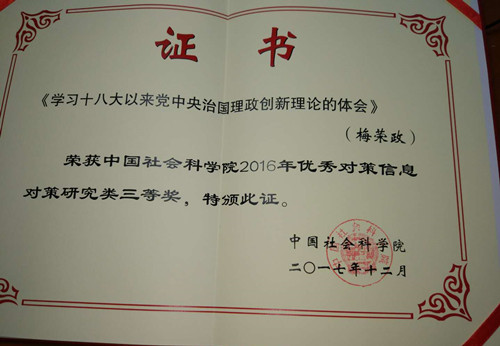 证书
《学习十八大以来党中央治国理政创新理论的体会》
（梅荣政）
荣获中国社会科学院2016年优秀对策信息
对策研究类三等奖，特颁此证。
中国社会科学院
二〇一七年十二月